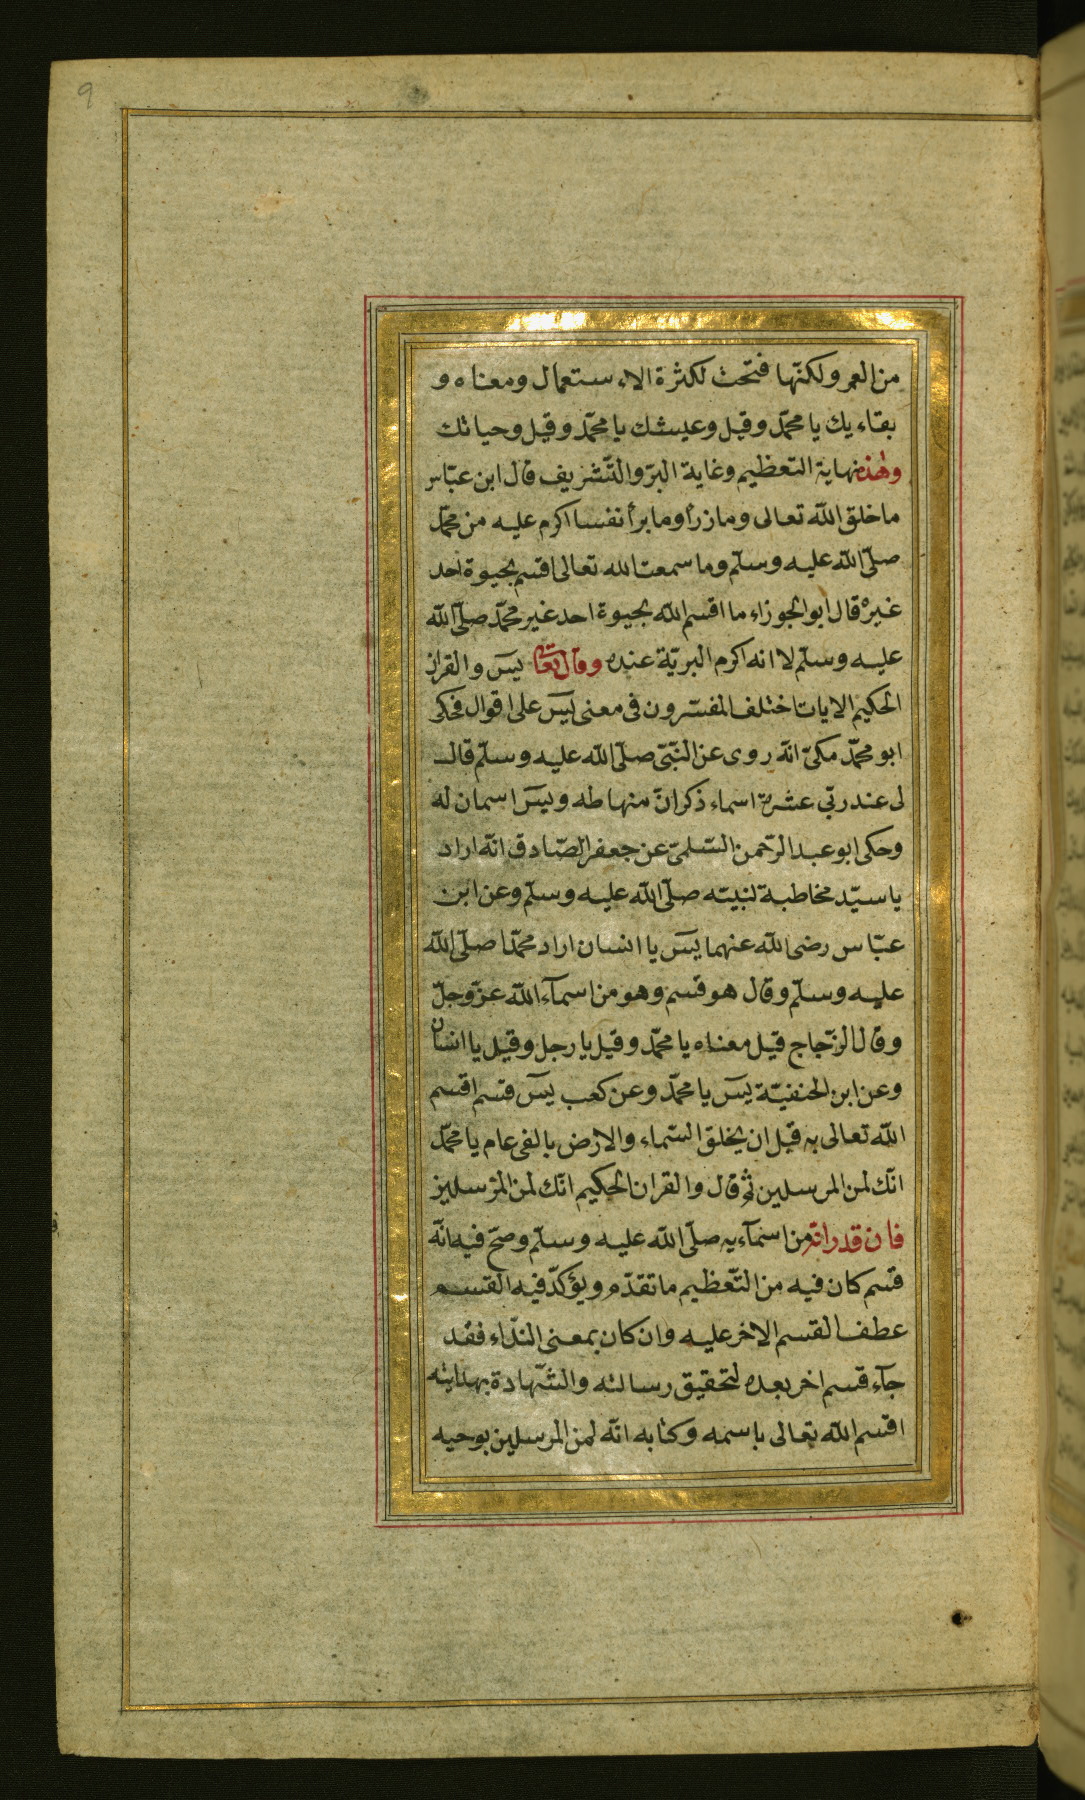 9
من العمر ولكنّها فتحت لكثرة الاستعمال ومعناه و
بقاءيك يا محمّد وقيل وعيشك يا محمّد وقيل وحياتك
وهذه نهاية التعظيم وغاية البرّ والتّشريف قال ابن عبّاس
ما خلق الله تعالى وما ذرأ وما برأ نفسا اكرم عليه من محمّد
صلّى الله عليه وسلّم وما سمعت الله تعالى اقسم بحيوة احد
غيره قال ابو الجوزاء ما اقسم الله بحيوة احد غير محمّد صلّى الله
عليه وسلّم لا انه اكرم البريّة عنده وقال تعا يسٓ والقران
الحكيم الايات اختلف المفسّرون فى معنى يسٓ على اقوال فحكى
ابو محمّد مكىّ انّه روى عن النّبىّ صلّى الله عليه وسلّم قال
لى عند ربّى عشرة اسماء ذكر انّ منها طه ويسٓ اسمان له
وحكى ابو عبد الرّحمن السّلمىّ عن جعفر الصّادق انّه اراد
يا سيّد مخاطبة لنبيّه صلّى الله عليه وسلّم وعن ابن
عبّاس رضى الله عنهما يسٓ يا انسان اراد محمّدا صلّى الله
عليه وسلّم وقال هو قسم وهو من اسمآء الله عزّ وجلّ
وقال الزّجاج قيل معناه يا محمّد وقيل يا رجل وقيل يا انسان
وعن ابن الحنفيّة يسٓ يا محمّد وعن كعب يسٓ قسم اقسم
الله تعالى به قبل ان يخلق السّماء والارض بالفى عام يا محمّد
انّك لمن المرسلين ثم قال والقران الحكيم انّك لمن المرسلين
فان قدر انّه من اسمآءيه صلّى الله عليه وسلّم وصحّ فيه انّه
قسم كان فيه من التّعظيم ما تقدّم ويؤكدّ فيه القسم
عطف القسم الاخر عليه وان كان بمعنى النّداء فقد
جآء قسم اخر بعده لتحقيق رسالته والشّهادة بهدايته
اقسم الله تعالى باسمه وكتابه انّه لمن المرسلين بوحيه